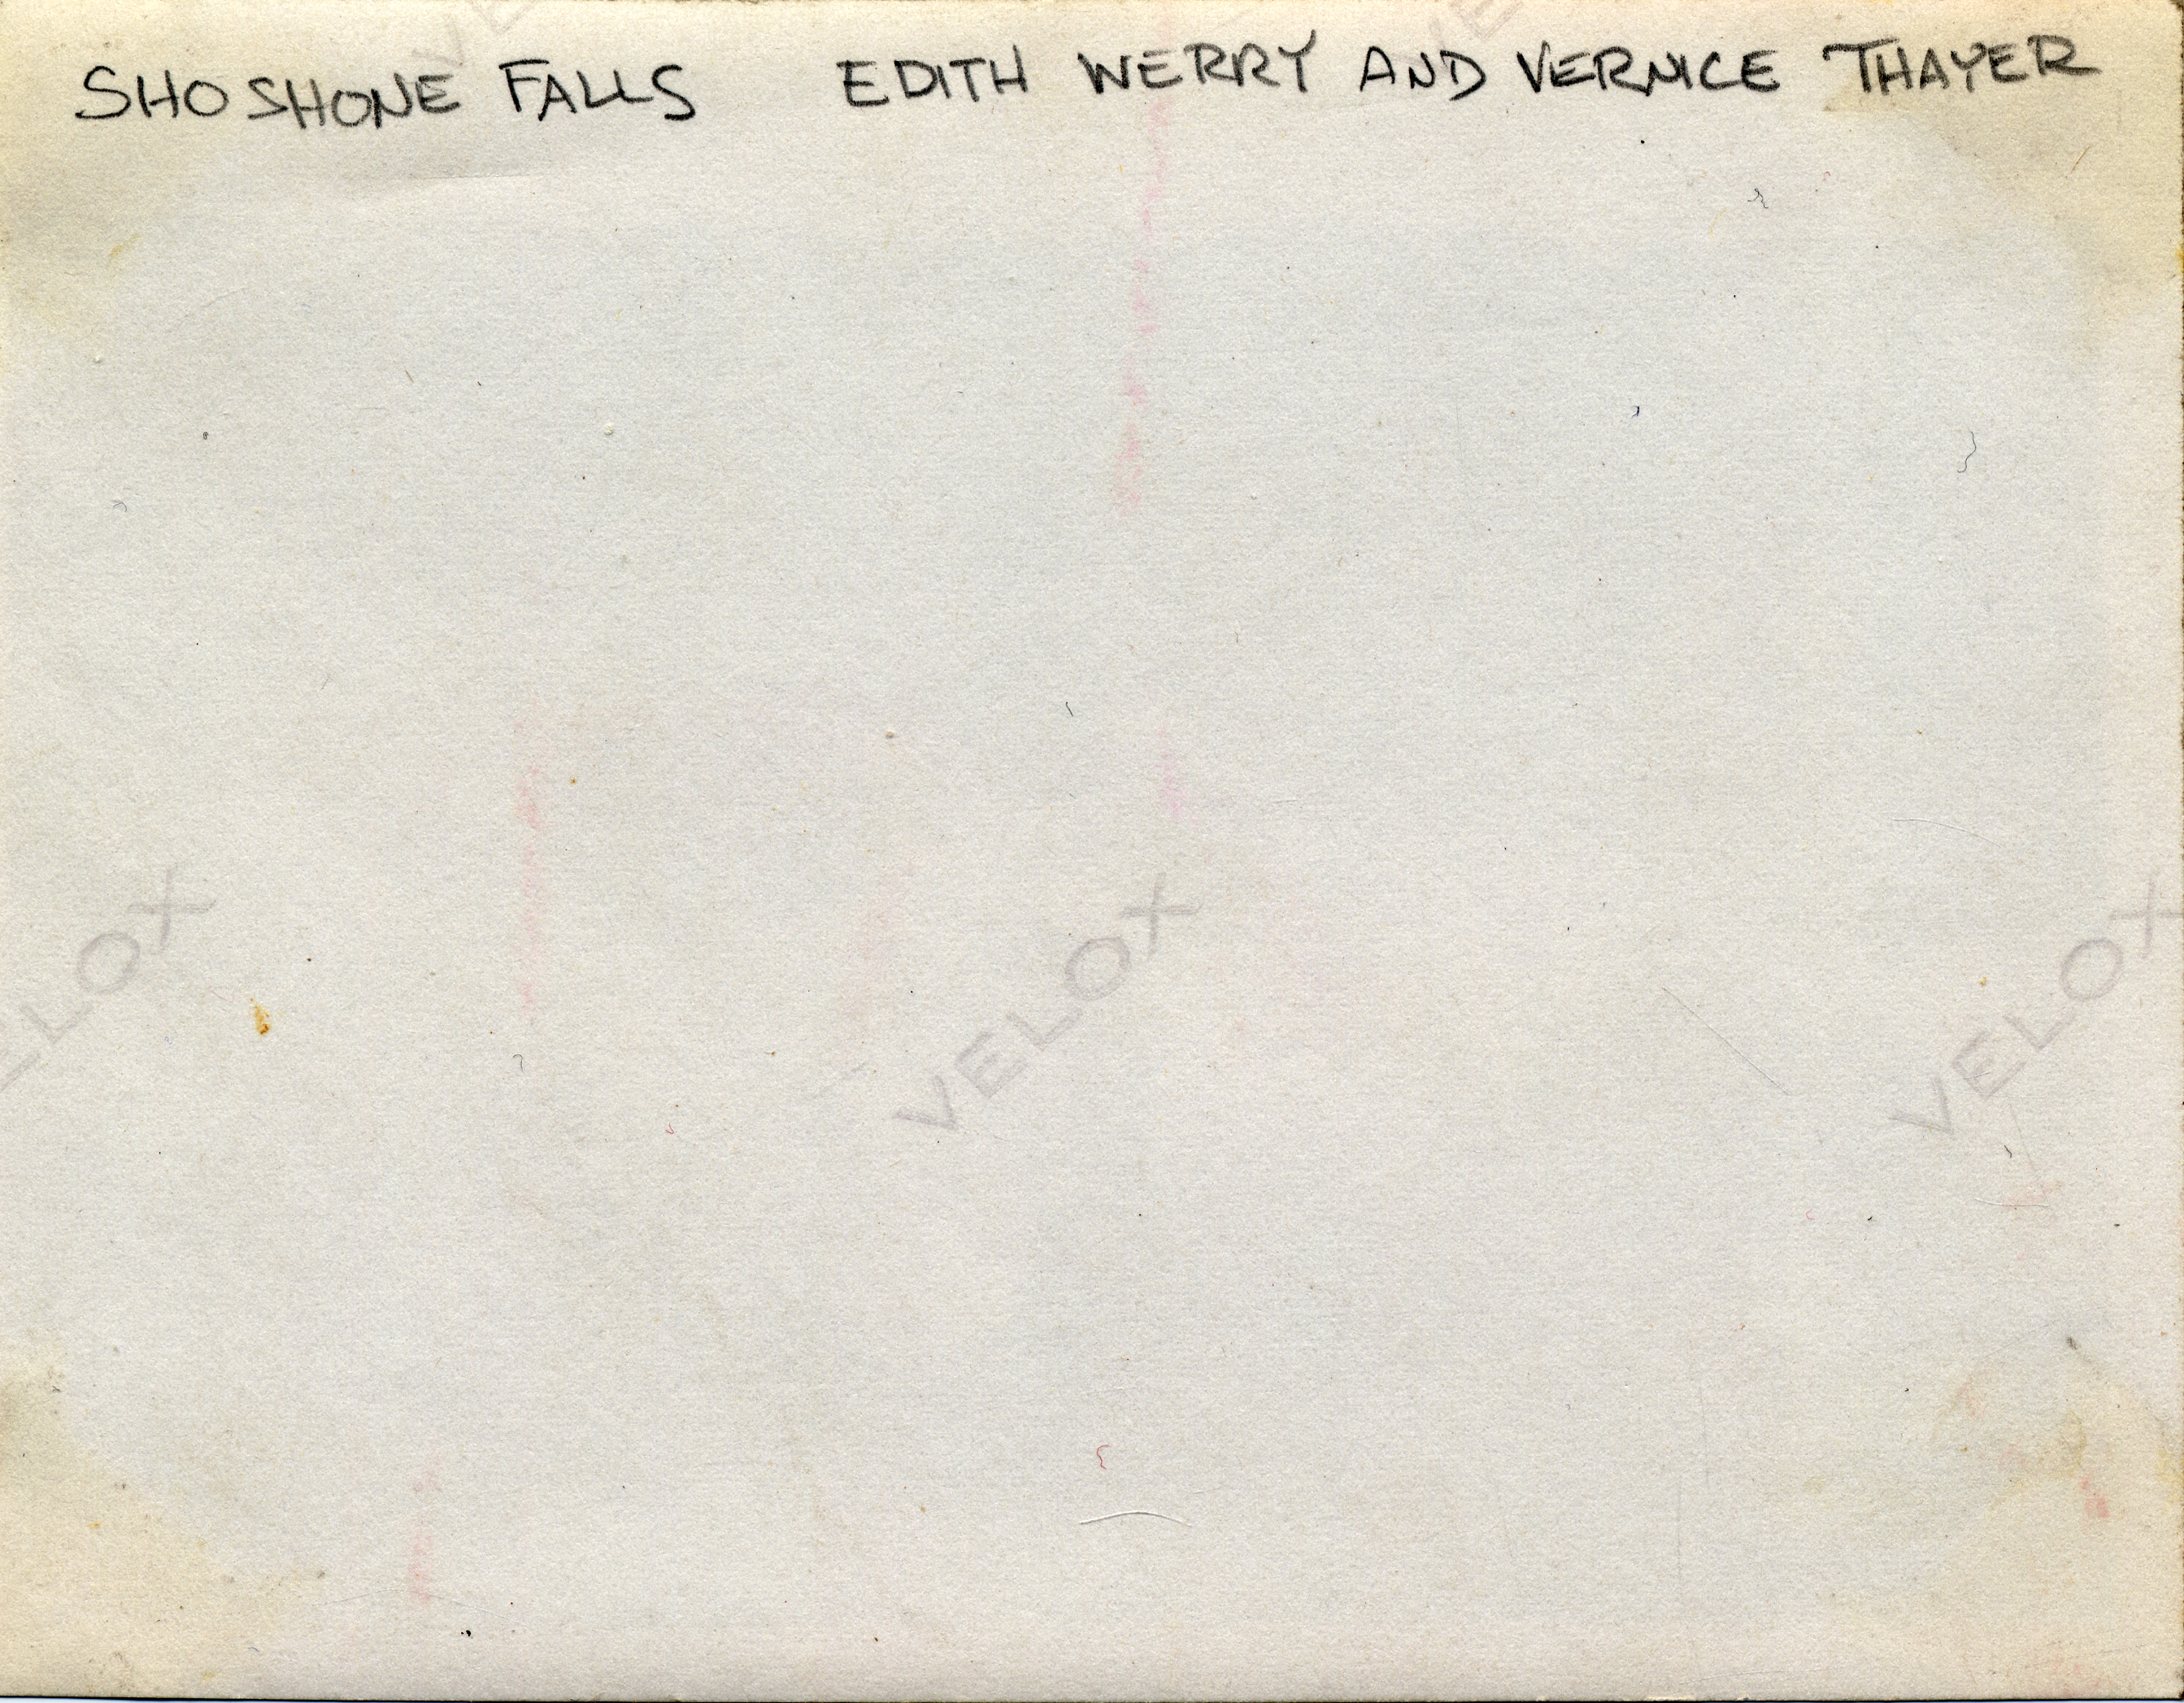 SHOSHONE FALLS EDITH WERRY AND VERNICE THAYER
VE
VE
ELOX
VELOX
VELOX